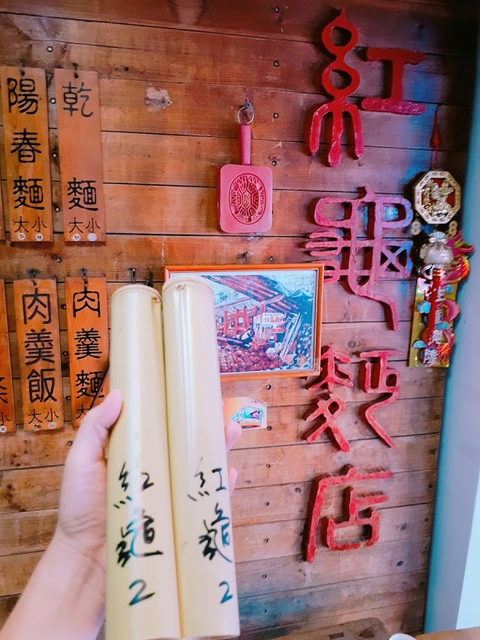 陽春麵
大 小
乾 麵
大 小
肉羹飯
大 小
肉羹麵
紅龜麵店
紅龜
2
紅龜
2